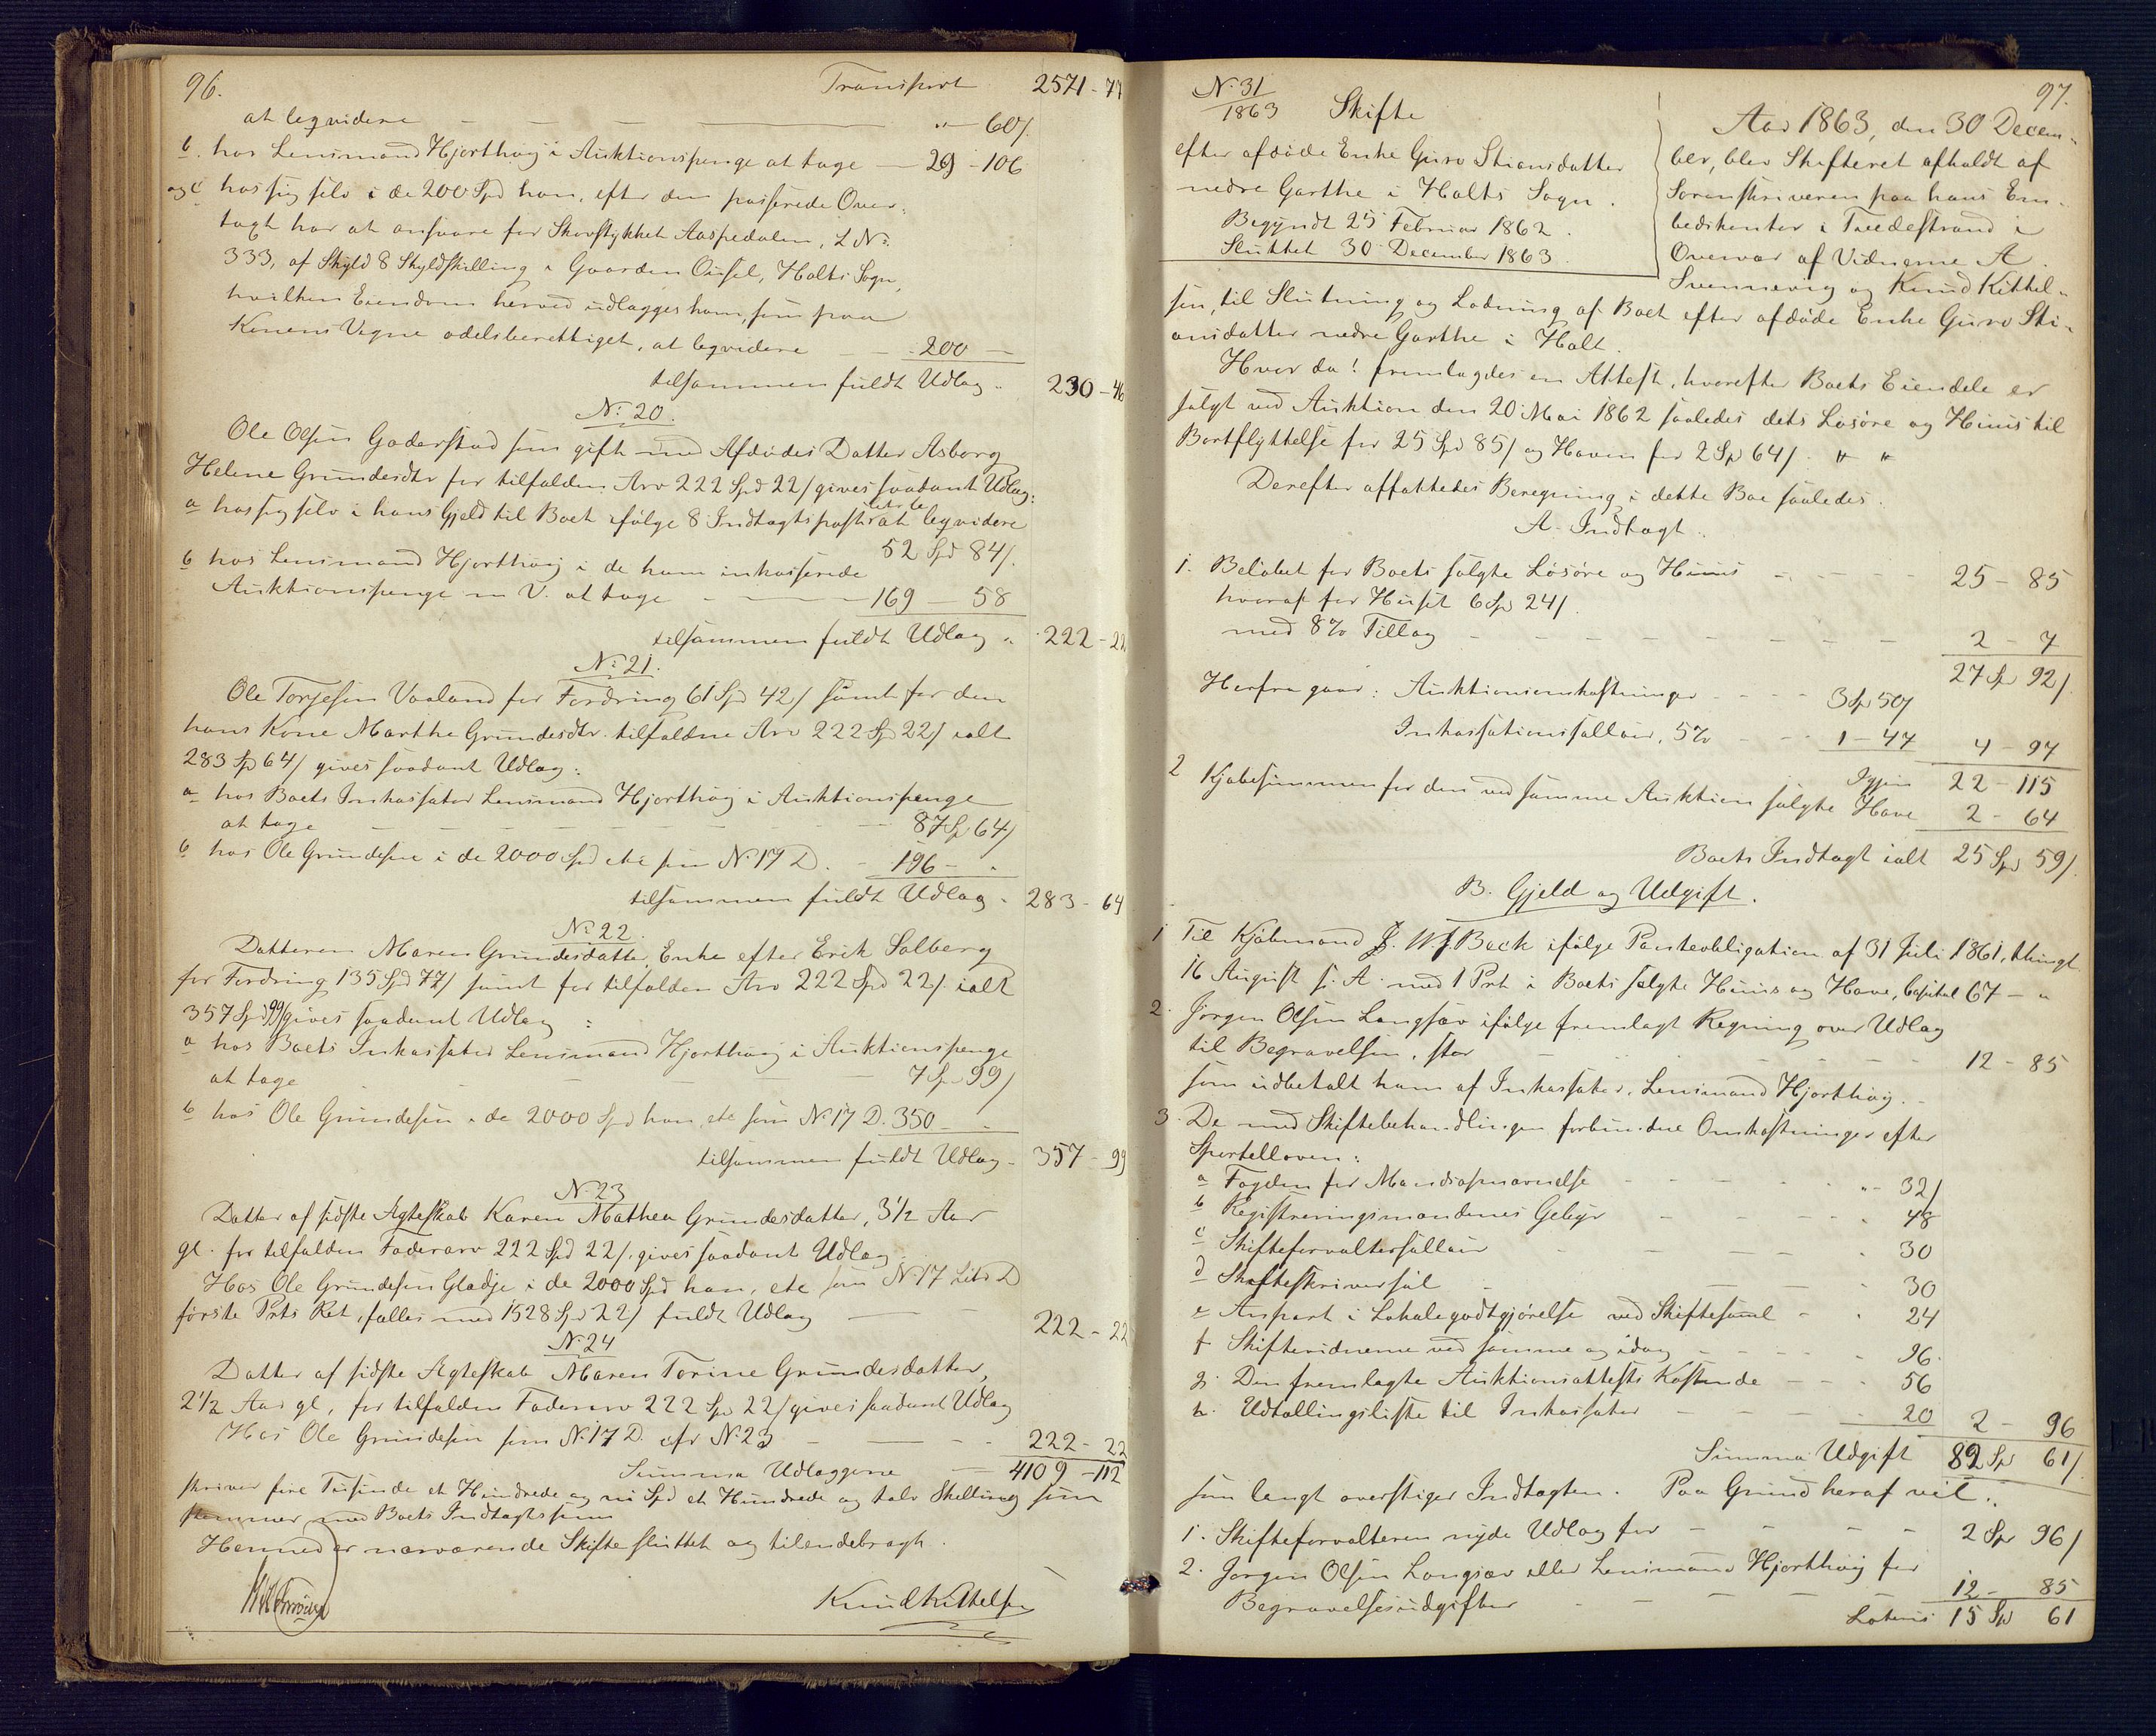 96.
Transport 2571-77
at leqvidere " 60/.
b. hos Lensmand Hjorthøij i Auktionspenge at tage 29-106
og c hos sig selv i de 200 Spd han, efter den passerede Over-
tagt har at ansvare for Skovstykket Aaspedalen, L No
333, af Skyld 8 Skyldskilling i Gaarden Ousel, Holts Sogn,
hvilken Eiendom herved udlægges ham, som paa
Konens Vegne odelsberettiget, at leqvidere 200 —
tilsammen fuldt Udlæg 230-46
No 20.
Ole Olsen Goderstad som gift med Afdødes Datter Asborg
Helene Grundesdtr for tilfalden Arv 222 Spd 22/ gives saadant Udlæg:
a hos sig selv i hans Gjeld til Boet ifølge 8 Indtægtspost at leqvidere
52 Spd 84/.
b hos Lensmand Hjorthøij i de ham inkasserede
Auktionspenge m V. at tage 169 — 58
tilsammen fuldt Udlæg 222-22
No 21.
Ole Torjesen Vaaland for Fordring 61 Spd 42/ samt for den
hans Kone Marthe Grundesdtr. tilfaldne Arv 222 Spd 22/ ialt
283 Spd 64/ gives saadant Udlæg:
a hos Boets Inkassator Lensmand Hjorthøij i Auktionspenge
at tage 87 Sp 64/
b hos Ole Grundesen i de 2000 Spd etc som No 17 D. 196 - "
tilsammen fuldt Udlæg 283-64
No 22.
Datteren Maren Grundesdatter, Enke efter Erik Solberg
for Fordring 135 Spd 77/ samt for tilfalden Arv 222 Spd 22/. ialt
357 Spd 99/ gives saadant Udlæg:
a hos Boets Inkassator Lensmand Hjorthøij i Auktionspenge
at tage 7 Sp 99/
b hos Ole Grundesen i de 2000 Spd han, etc som No 17 D. 350 -
tilsammen fuldt Udlæg 357-99
No 23
Datter af sidste Ægteskab Karen Mathea Grundesdatter, 3 1/2 Aar
gl. for tilfalden Faderarv 222 Spd 22/. gives saadant Udlæg
Hos Ole Grundesen Gladje i de 2000 Spd han, etc som No 17 Litr D
første Prts Ret, fælles med 1528 Spd 22/ fuldt Udlæg 222-22
No 24
Datter af sidste Ægteskab Maren Torine Grundesdatter,
2 1/2 Aar gl, for tilfalden Faderarv 222 Spd 22/ gives saadant Udlæg
Hos Ole Grundesen som No 17 D. cfr No 23 222-22
Summa Udlæggene 4109-112
skriver fire Tusinde et Hundrede og ni Spd et Hundrede og tolv Skilling som
stemmer med Boets Indtægtssum
Hermed er nærværende Skifte sluttet og tilendebragt.
Knud Kittelsen
97.
No 31
1863 Skifte
efter afdøde Enke Guro Stiansdatter
nedre Garthe i Holts Sogn.
Begyndt 25 Februar 1862.
Sluttet 30 December 1863.
Aar 1863, den 30 Decem-
ber, blev Skifteret afholdt af
Sorenskriveren paa hans Em-
bedskontor i Tvedestrand i
Overvær af Vidnerne A.
Svennevig og Knud Kittel-
sen, til Slutning og Lodning af Boet efter afdøde Enke Guro Sti-
ansdatter nedre Garthe i Holt.
Hvor da! fremlagdes en Attest, hvorefter Boets Eiendele er
solgt ved Auktion den 20 Mai 1862 saaledes dets Løsøre og Huus til
Bortflyttelse for 25 Spd 85/ og Haven for 2 Sp 64/. " "
Derefter affattedes Beregning i dette Boe saaledes.
A. Indtægt.
1. Beløbet for Boets solgte Løsøre og Huus 25-85
hvoraf for Huset 6 Sp 24/.
med 8% Tillæg 2-7
27 Sp 92/.
Herfra gaar: Auktionsomkostninger 3 Sp 50/
Inkassationssallair, 5% 1-47 4-97
Igjen 22-115
2 Kjøbesummen for den ved samme Auktion solgte Have 2-64
Boets Indtægt ialt 25 Spd 59/.
B. Gjeld og Udgift.
1 Til Kjøbmand J. W. Beck ifølge Panteobligation af 31 Juli 1861, thingl.
16 August s. A. med 1 Prt i Boets solgte Huus og Have, Capital 67 - "
2. Jørgen Olsen Langsæv ifølge fremlagt Regning over Udlæg
til Begravelsen, stor 12-85
som udbetalt ham af Inkassator, Lensmand Hjorthøij.
3. De med Skiftebehandlingen forbundne Omkostninger efter
Sportelloven:
a Fogden for Mandsopnævnelse " 32/
b Registreringsmændenes Gebyr 48
c Skifteforvaltersallair 30
d Skifteskriversal 30
e Anpart i Lokalegodtgjørelse ved Skiftesaml 24
f Skiftevidnerne ved samme og idag 96.
g. Den fremlagte Auktionsattests Kostende 56
h. Udtællingsliste til Inkassator 20 2-96
Summa Udgift 82 Sp 61/.
som langt overstiger Indtægten. Paa Grund heraf vil:
1. Skifteforvalteren nyde Udlæg for 2 Sp 96/
2. Jørgen Olsen Langsæv eller Lensmand Hjorthøij for
Begravelsesudgifter 12-85
Lateris 15 Spd 61